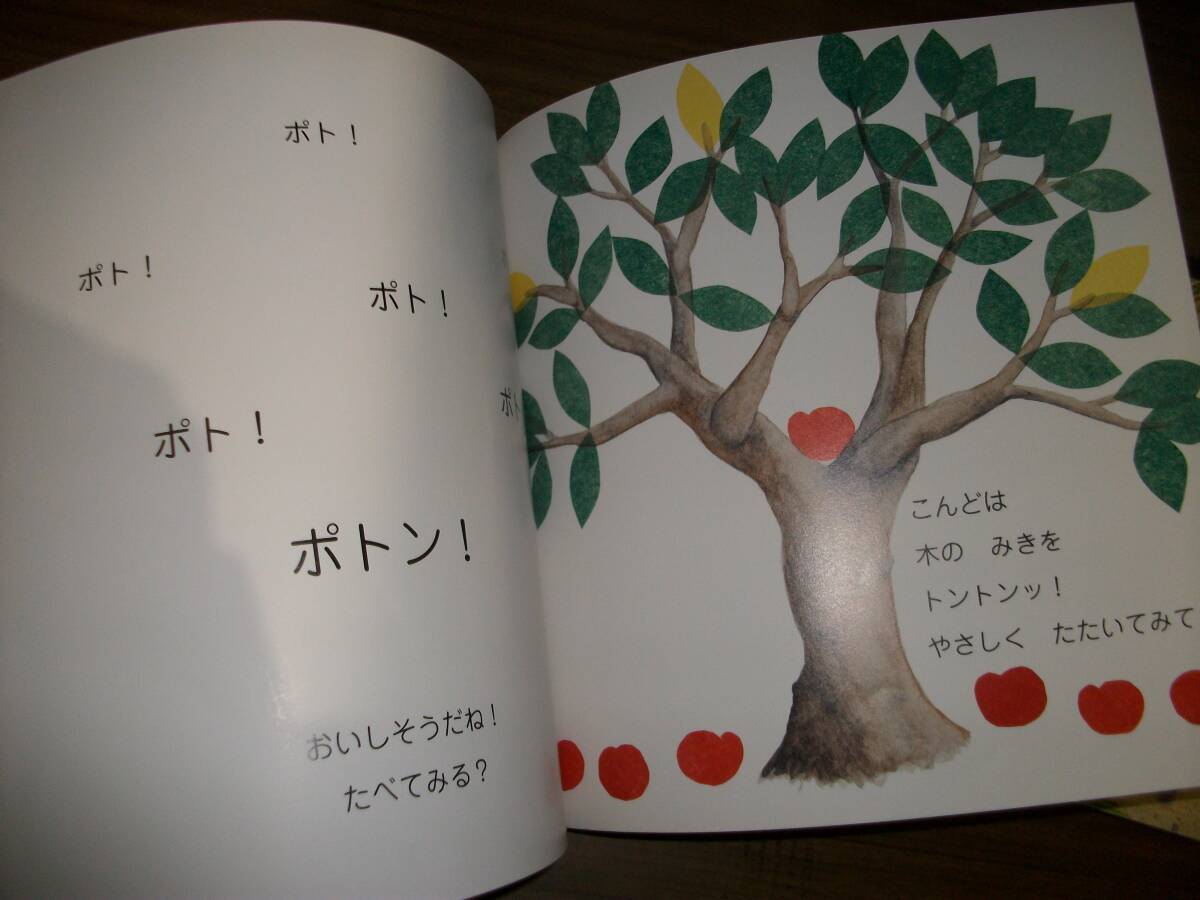 ポト！
ポト！
ポト！
ポト！
ポトン！
おいしそうだね！
たべてみる？
ポト
こんどは
木の　みきを
トントンッ！
やさしく　たたいてみて